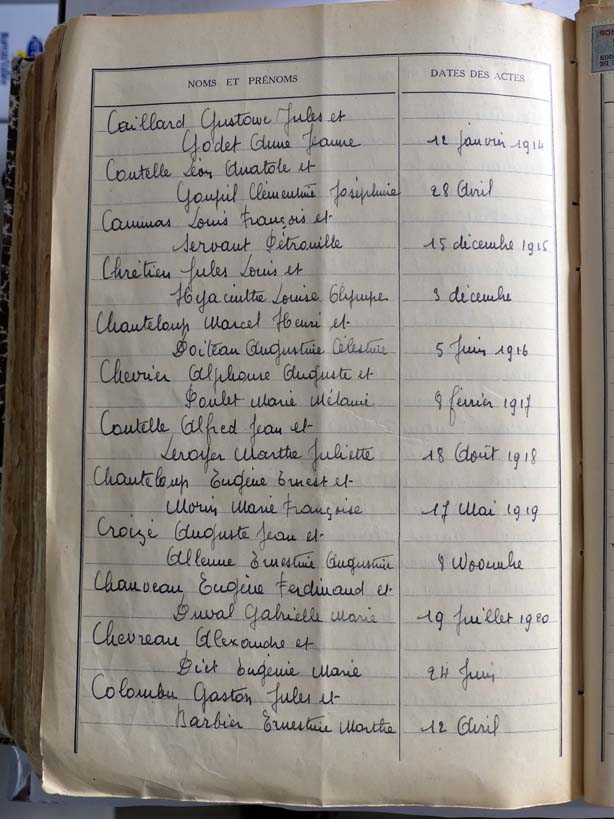 NOMS ET PRÉNOMS DATES DES ACTES
Caillard Gustave Jules et
Godet Anne Jeanne 12 janvier 1914
Coutelle Léon Anatole et
Goupil Clémentine Joséphine 28 Avril
Caminas Louis François et
Servant Pétronille 15 décembre 1915
Chrétien Jules Louis et
Hyacinthe Louise Olympe 3 décembre
Chanteloup Marcel Henri et
Boiteau Augustine Célestine 5 Juin 1916
Chevrier Alphonse Auguste et
Poulet Marie Mélanie 9 février 1917
Coutelle Alfred Jean et
Leroyer Marthe Juliette 18 Août 1918
Chanteloup Eugène Ernest et
Morin Marie Françoise 17 Mai 1919
Croizé Auguste Jean et
Allenne Ernestine Augustine 8
Chauveau Eugène Ferdinand et
Duval Gabrielle Marie 19 Juillet 1920
Chevreau Alexandre et
Eugénie Marie 24 Juin
Gaston Jules et
Barbier Ernestine Marthe 12 Avril